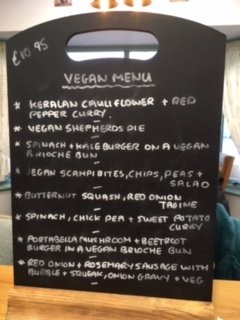 £10.95
VEGAN MENU
* KERALAN CAULIFLOWER + RED
PEPPER CURRY
* VEGAN SHEPHERDS PIE
* SPINACH + KALE BURGER ON A VEGAN
BRIOCHE BUN
* VEGAN SCAMPI BITES, CHIPS, PEAS +
SALAD
* BUTTERNUT SQUASH, RED ONION
TAGINE
* SPINACH, CHICK PEA + SWEET POTATO
CURRY
* PORTABELLA MUSHROOM + BEETROOT
BURGER IN A VEGAN BRIOCHE BUN
* RED ONION + ROSEMARY SAUSAGE WITH
BUBBLE + SQUEAK, ONION GRAVY + VEG